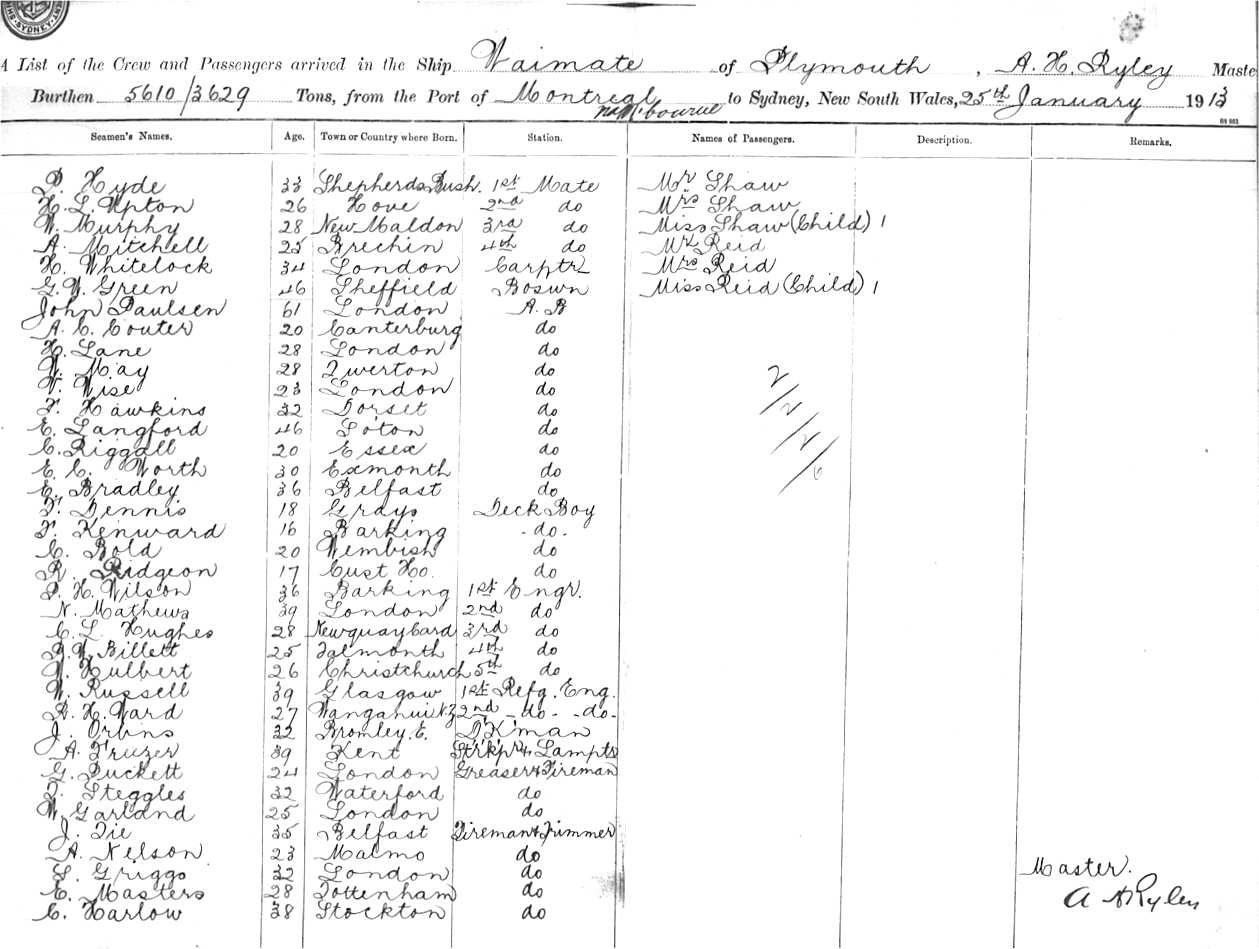 SYDNEY
A List of the Crew and Passengers arrived in the Ship Waimate of Plymouth, A. H. Ryley Maste
Burthen 5610/3629 Tons, from the Port of Montreal to Sydney, New South Wales, 25th January 1913
via Melbourne
Seamen's Names. Age. Town or Country where Born. Station. Names of Passengers. Description. Remarks.
P. Hyde 33 Shepherds Bush. 1st Mate Mr Shaw
H. L. Upton 26 Hove 2nd do Mrs Shaw
W. Murphy 28 New Maldon 3rd do Miss Shaw (Child) 1
A. Mitchell 25 Brechin 4th do Mr Reid
H. Whitelock 34 London Carptr Mrs Reid
G. W. Green 46 Sheffield Boswn Miss Reid (Child) 1
John Paulsen 61 London A. B
A. C. Couter 20 Canterburg do
H. Lane 28 London do
W. May 28 Tiverton do 2/2/2/6
W. Wise 23 London do
F. Hawkins 32 Dorset do
E. Langford 46 So'ton do
C. Riggall 20 Essex do
E. C. Worth 30 Exmonth do
E. Bradley 36 Belfast do
F. Dennis 18 Grays Deck Boy
F. Kenward 16 Barking - do -
C. Bold 20 Wembish do
R. Ridgeon 17 Cust Ho. do
P. H. Wilson 36 Barking 1st Engr.
N. Mathews 39 London 2nd do
C. L. Hughes 28 Newquay Card 3rd do
R. W. Billett 25 Falmonth 4th do
W. Hulbert 26 Christchurch 5th do
W. Russell 39 Glasgow 1st Refg. Eng.
R. H. Ward 27 Wangahui N.Z 2nd - do - - do -
J. Orbins 32 Bromley. E. D'K'man
A. Fruzer 39 Kent Str'kp'r & Lamptr
G. Puckett 24 London Greaser & Fireman
T. Steggles 32 Waterford do
W. Garland 25 London do
J. Tie 35 Belfast Fireman & Trimmer
A. Nelson 23 Malmo do
S. Griggs 32 London do Master.
E. Masters 28 Tottenham do A H Ryley
C. Harlow 38 Stockton do